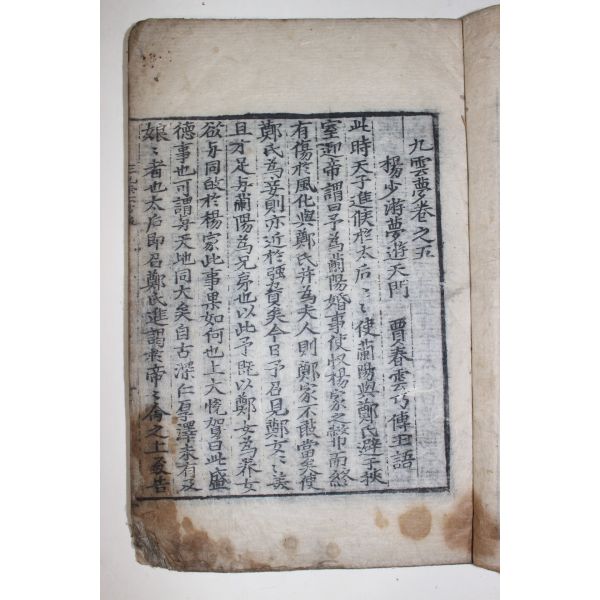 九雲夢卷之五
楊少游夢遊天門 賈春雲巧傳玉語
此時天子進候於太后〻〻使蘭陽與鄭氏避于狹
室迎帝謂曰予為蘭陽婚事使収楊家之幣而終
有傷於風化與鄭氏并為夫人則鄭家不敢當矣使
鄭氏為妾則亦近於强貴矣今日予召見鄭女〻〻美
且才足与蘭陽為兄弟也以此予既以鄭女為养女
欲与同啟於楊家此事果如何也上大悅賀曰此盛
德事也可謂与天地同大矣自古深仁厚澤未有及
娘〻者也太后即召鄭氏進謁於帝〻命之上
告